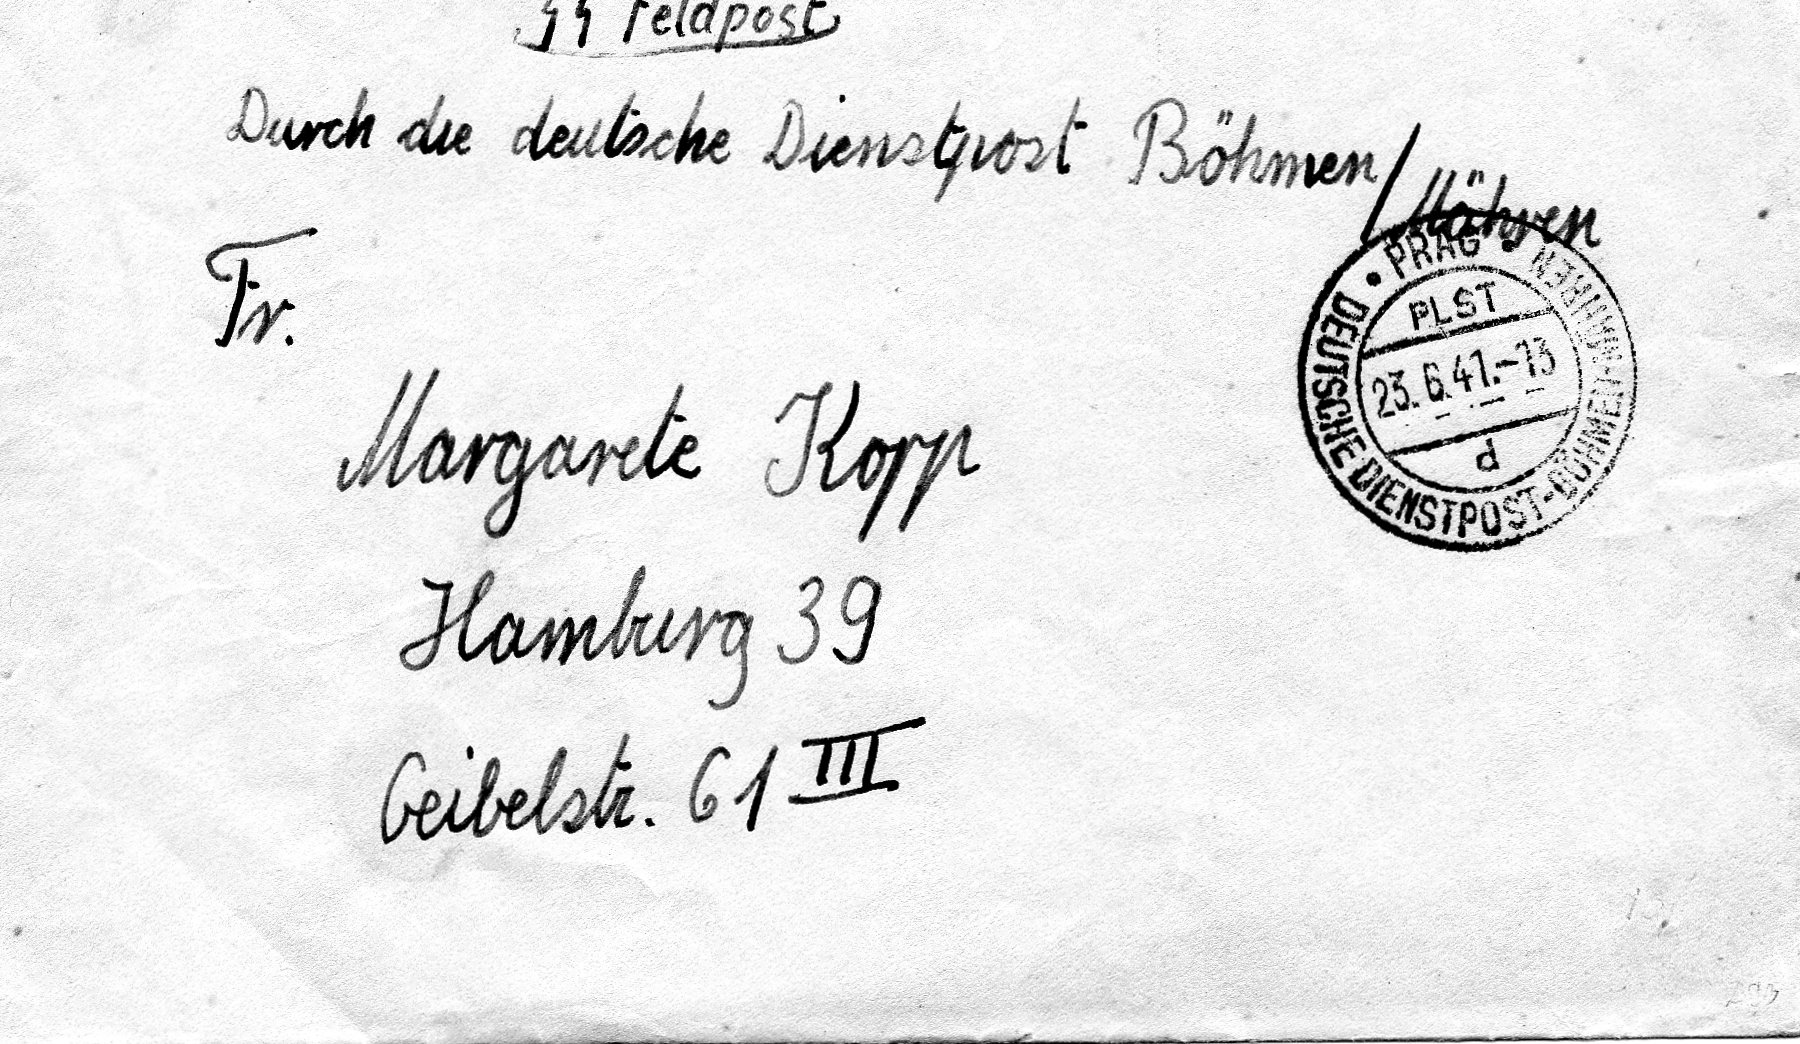 SS Feldpost
Durch die deutsche Dienstpost Böhmen/Mähren
Fr.
Margarete Kopp
Hamburg 39
Geibelstr. 61 III
• PRAG •
DEUTSCHE DIENSTPOST-BÖHMEN-MÄHREN
PLST
23.6.41.-13
d